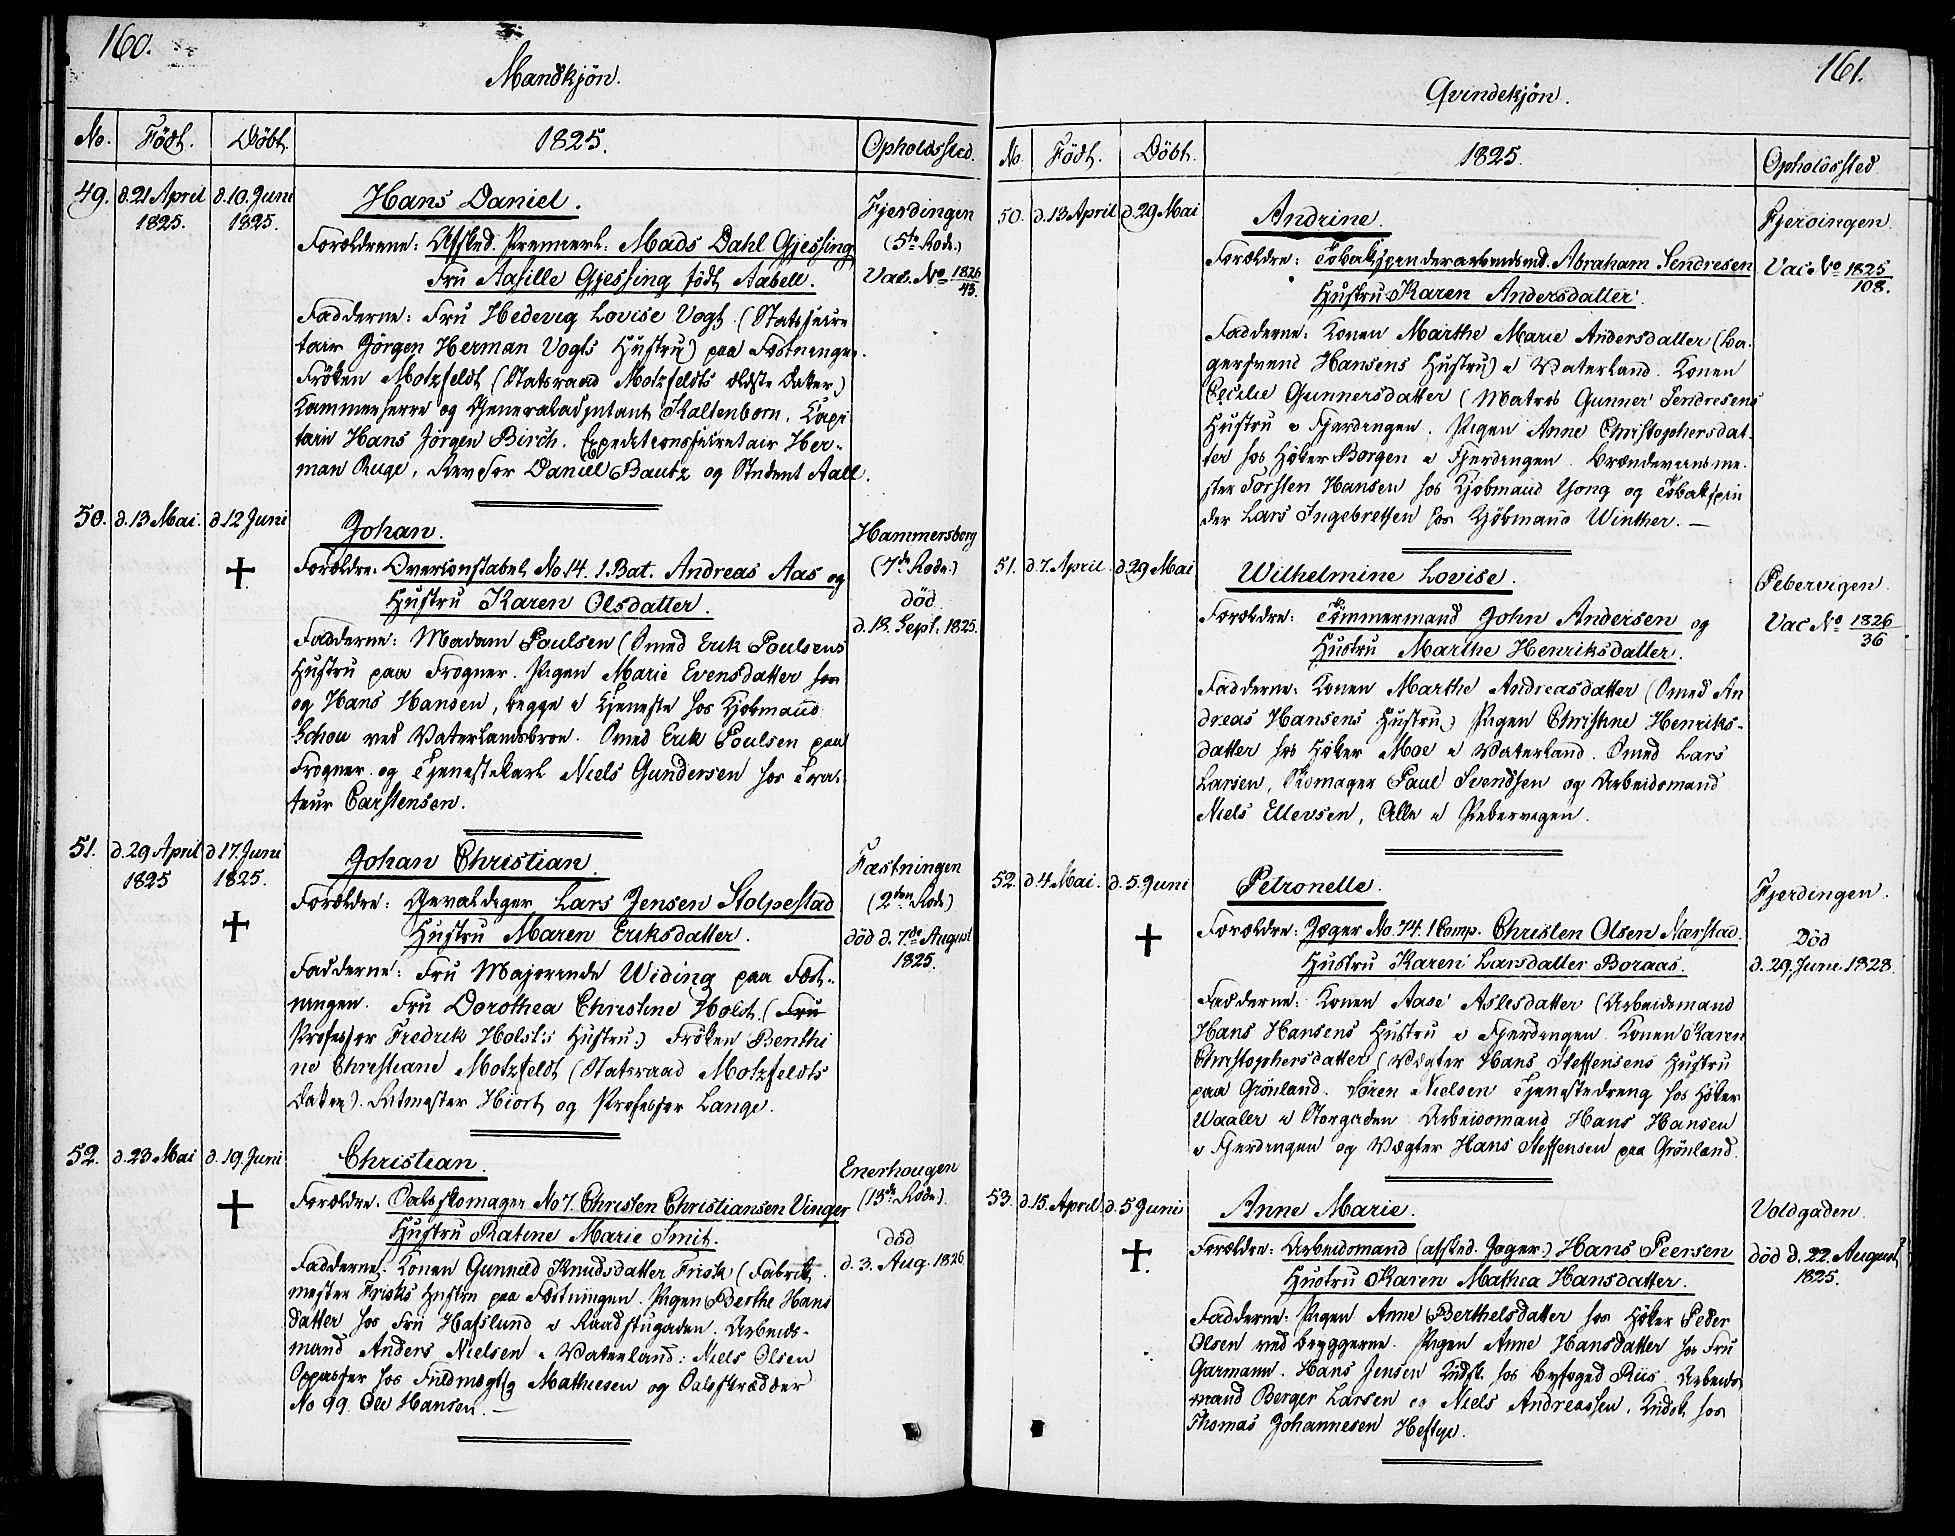 160.
Mandkjön.
No. Födt. Döbt. 1825. Opholdssted.
49. d. 21 April 1825. d. 10. Juni 1825.
Hans Daniel.
Forældrene: Afsked. Premierl. Mads Dahl Gjessing
Fru Aasille Gjessing födt Aabell.
Fadderne: Fru Hedevig Lovise Vogt (Statssecre
tair Jörgen Herman Vogts Hustru) paa Fæstningen.
Fröken Motzfeldt (Statsraad Motzfeldts ældste Datter)
Kammerherre og Generaladjutant Kaltenborn. Capi
tain Hans Jörgen Birch. Expeditionssecretair Her-
man Ruge, Revisor Daniel Bautz og Student Aall.
Fjerdingen
(5te Rode.)
Vac. No 1826/43.
50. d. 13 Mai. d 12 Juni
Johan.
Forældre: Overconstabel No. 14. 1. Bat. Andreas Aas og
Hustru Karen Olsdatter.
Fadderne: Madam Poulsen (Smed Erik Poulsens
Hustru paa Frogner. Pigen Marie Evensdatter hos
og Hans Hansen, begge i Tjeneste hos Kjöbmand
Schou ved Vaterlandsbroe. Smed Erik Poulsen paa
Frogner og Tjenestekarl Niels Gundersen hos Trai-
teur Carstensen.
Hammersborg
(7de Rode.)
död
d. 18. Sept. 1825.
51. d. 29 April 1825 d 17. Juni 1825.
Johan Christian.
Forældre: Gevaldiger Lars Jensen Stolpestad
Hustru Maren Eriksdatter.
Fadderne: Fru Majorinde Widing paa Fæst-
ningen. Fru Dorothea Christine Holst. (Fru
Professor Fredrik Holst's Hustru) Fröken Benthi
ne Christiane Motzfeldt (Statsraad Motzfeldts
Datter). Ritmester Hiort og Professor Lange.
Fæstningen
(2den Rode)
död d. 7de August
1825.
52. d. 23 Mai d. 19. Juni
Christian.
Forældre: Vaabenskomager No 7. Christen Christiansen Vinger
Hustru Katine Marie Smit.
Fadderne: Konen Gunnild Knudsdatter Frisk (Fabrik
mester Frisks Hustru paa Fæstningen. Pigen Berthe Hans
datter hos Fru Hafslund i Raadstugaden. Arbeids-
mand Anders Nielsen i Vaterland: Niels Olsen
Oppasser hos Fuldmægtig Mathiesen og
No 99. Ole Hansen. —
Enerhougen
(13de Rode)
död
d. 3. Aug. 1826
161.
Qvindekjön.
No. Födt. Döbt. 1825. Opholdssted.
50. d. 13 April d. 29 Mai
Andrine.
Forældre: Tobakspinderarbeidsmd. Abraham Sendresen
Hustru Karen Andersdatter.
Fadderne: Konen Marthe Marie Andersdatter (Ba-
gersvend Hansens Hustru) i Vaterland. Konen
Cecilie Gunnersdatter (Matros Gunner Sendresens
Hustru i Fjerdingen. Pigen Anne Christophersdat-
ter hos Höker Borgen i Fjerdingen. Brændeviinsme-
ster Torsten Hansen hos Kjöbmand Yong og Tobakspin
der Lars Ingebretsen hos Kjöbmand Winther. —
Fjerdingen.
Vac No 1825/108.
51. d. 7. April. d. 29 Mai
Wilhelmine Lovise.
Forældre: Tömmermand John Andersen og
Hustru Marthe Henriksdatter.
Fadderne: Konen Marthe Andreasdatter (Smed An
dreas Hansens Hustru) Pigen Christine Henriks-
datter hos Höker Moe i Vaterland. Smed Lars
Larsen, Skomager Paul Svendsen og Arbeidsmand
Niels Ellevsen, Alle i Pebervigen.
Pebervigen
Vac No 1826/36
52. d. 4 Mai. d. 5. Juni
Petronelle.
Forældre: Jæger No. 74. 1 Comp. Christen Olsen Nærstad.
Hustru Karen Larsdatter Boraas.
Fadderne: Konen Aase Aslesdatter (Arbeidsmand
Hans Hansens Hustru i Fjerdingen. Konen Karen
Christophersdatter (Vægter Hans Steffensens Hustru
paa Grönland. Sören Nielsen Tjenestedreng hos Höker
Waaler i Storgaden. Arbeidsmand Hans Hansen
i Fjerdingen og Vægter Hans Steffensen paa Grönland.
Fjerdingen.
Död
d. 29 Juni 1828.
53. d. 15. April d. 5 Juni
Anne Marie.
Forældre: Arbeidsmand (afsked. Jæger.) Hans Peersen
Hustru Karen Mathea Hansdatter.
Fadderne: Pigen Anne Berthelsdatter hos Höker Peder
Olsen ved Bryggerne. Pigen Anne Hansdatter hos Fru
Garmann. Hans Jensen Kudsk hos Byfoged Riis. Arbeids
mand Berger Larsen og Niels Andreassen, Kudsk hos
Thomas Johannesen Heftye.
Voldgaden.
död d. 22. August
1825.